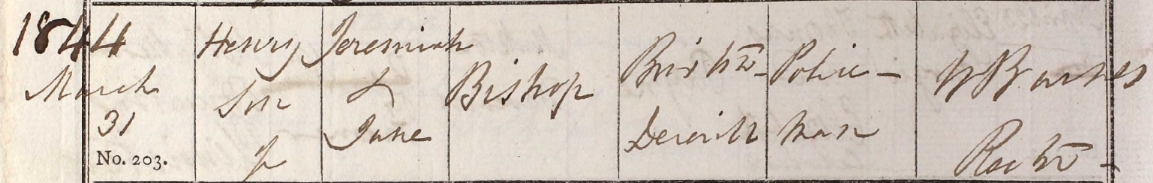 1844
March
31
No. 203.
Henry
Son
of
Jeremiah
&
Jane
Bishop
Brixton
Deverill
Police-
man
Rector